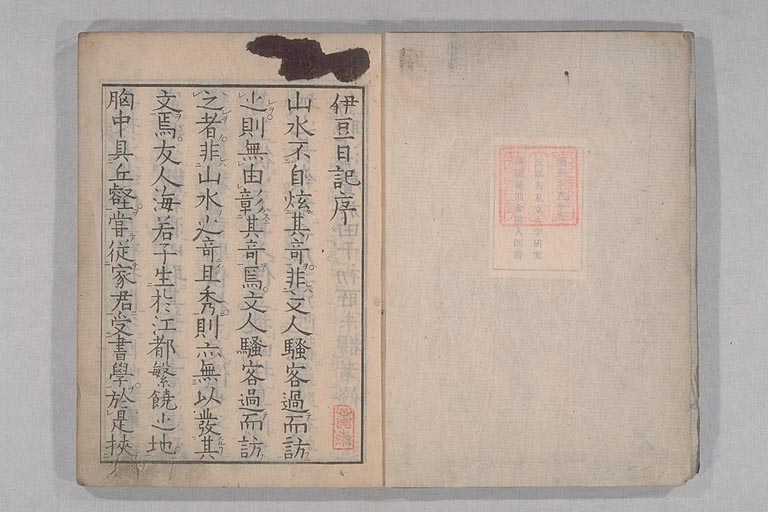 伊豆日記序
山水不自炫其奇非文人騷客過而訪
之則無由彰其奇焉文人騷客過而訪
之者非山水之奇且秀則亦無以發其
文焉友人海若子生於江都繁饒之地
胸中具丘壑嘗從家君受書學於是挾